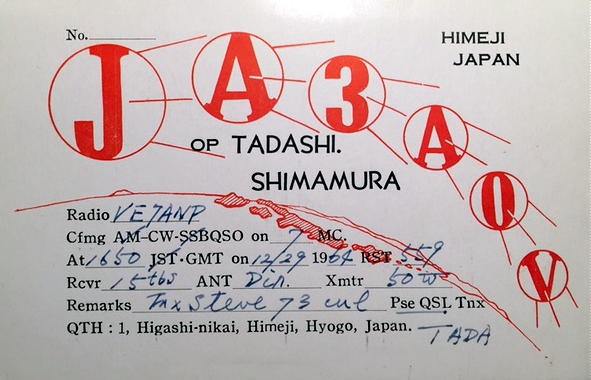 No.
HIMEJI
JAPAN
JA3AOV
OP TADASHI.
SHIMAMURA
Radio VE7ANP
Cfmg AM-CW-SSBQSO on 7 MC.
At 1650 JST·GMT on 12/29 1964 RST 559
Rcvr 15tbs ANT Dip. Xmtr 50w
Remarks Tnx Steve 73 cul Pse QSL Tnx
QTH : 1, Higashi-nikai, Himeji, Hyogo, Japan.
TADA